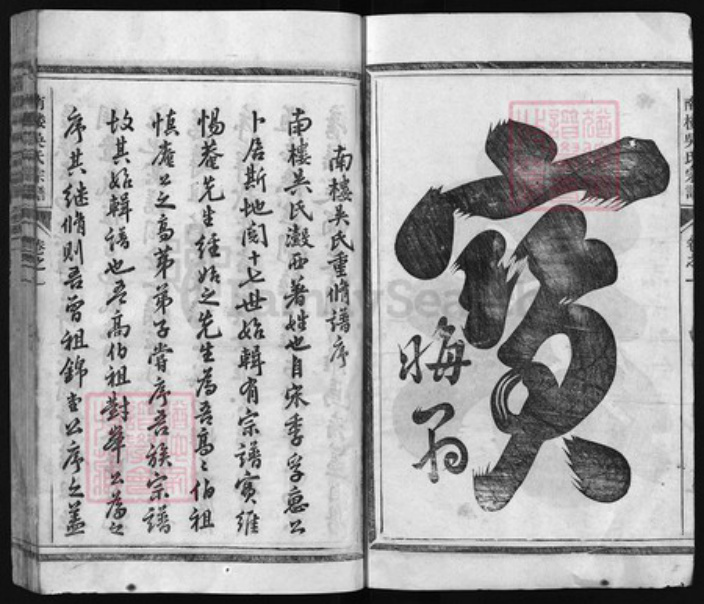 寶
晦翁
南樓吳氏宗譜
卷之一
南樓吳氏重脩譜序
南樓吳氏瀫西著姓也自宋季孚惠公
卜居斯地閱十七世始輯有宗譜實維
惕菴先生經始之先生為吾高〻伯祖
慎菴公之高弟弟子嘗序吾族宗譜
故其始輯譜也吾高伯祖對華公為之
序其繼脩則吾曾祖錦堂公序之蓋
南樓吳氏宗譜
卷之一